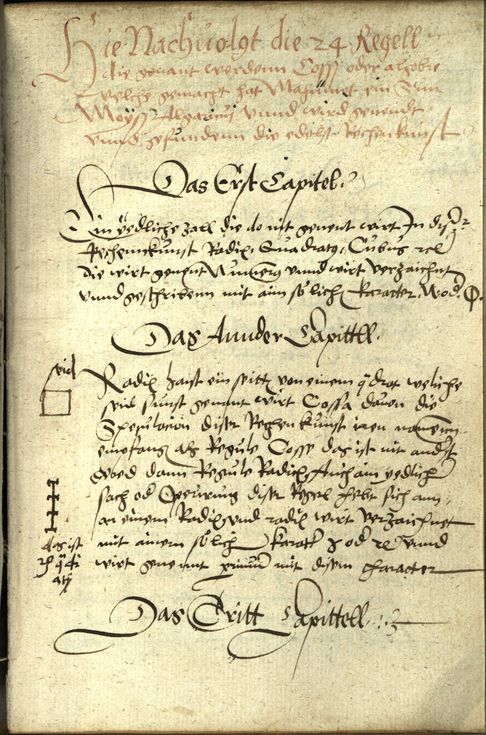 Hie Nachuolgt die 24 Regell
die genant werdenn Coss oder algobre
welche gemacht hat Mahumet ein Sun
Moysi Algarismi vnnd wird genendt
vnnd gefundenn die edelst Rechenkunst
Das Erst Capitel
Ein yedliche zall die do nit genent wirt In diser
Rechenkunst Radix, Quadratz, Cubus
die wirt genent Numerus vnnd wirt verzaichnet
vnnd geschribenn mit aim solich karacter
Das Annder Capittell
seid
Radix haist ein seitt von einem quadrat weliche
seid sunst genant wirt Cossa dauon die
Speculacion diser Rechenkunst iren namen
als Regule Cosse das ist nit anders
gered dann Regule Radix, Auch ain yedlich
sach od diser Regel hebt sich ann
an einem Radix vnd radix wirt verzaichnet
das ist
mit ainem solich karacter od vnnd
wirt genennt mit disem character
Das Dritt Capittell